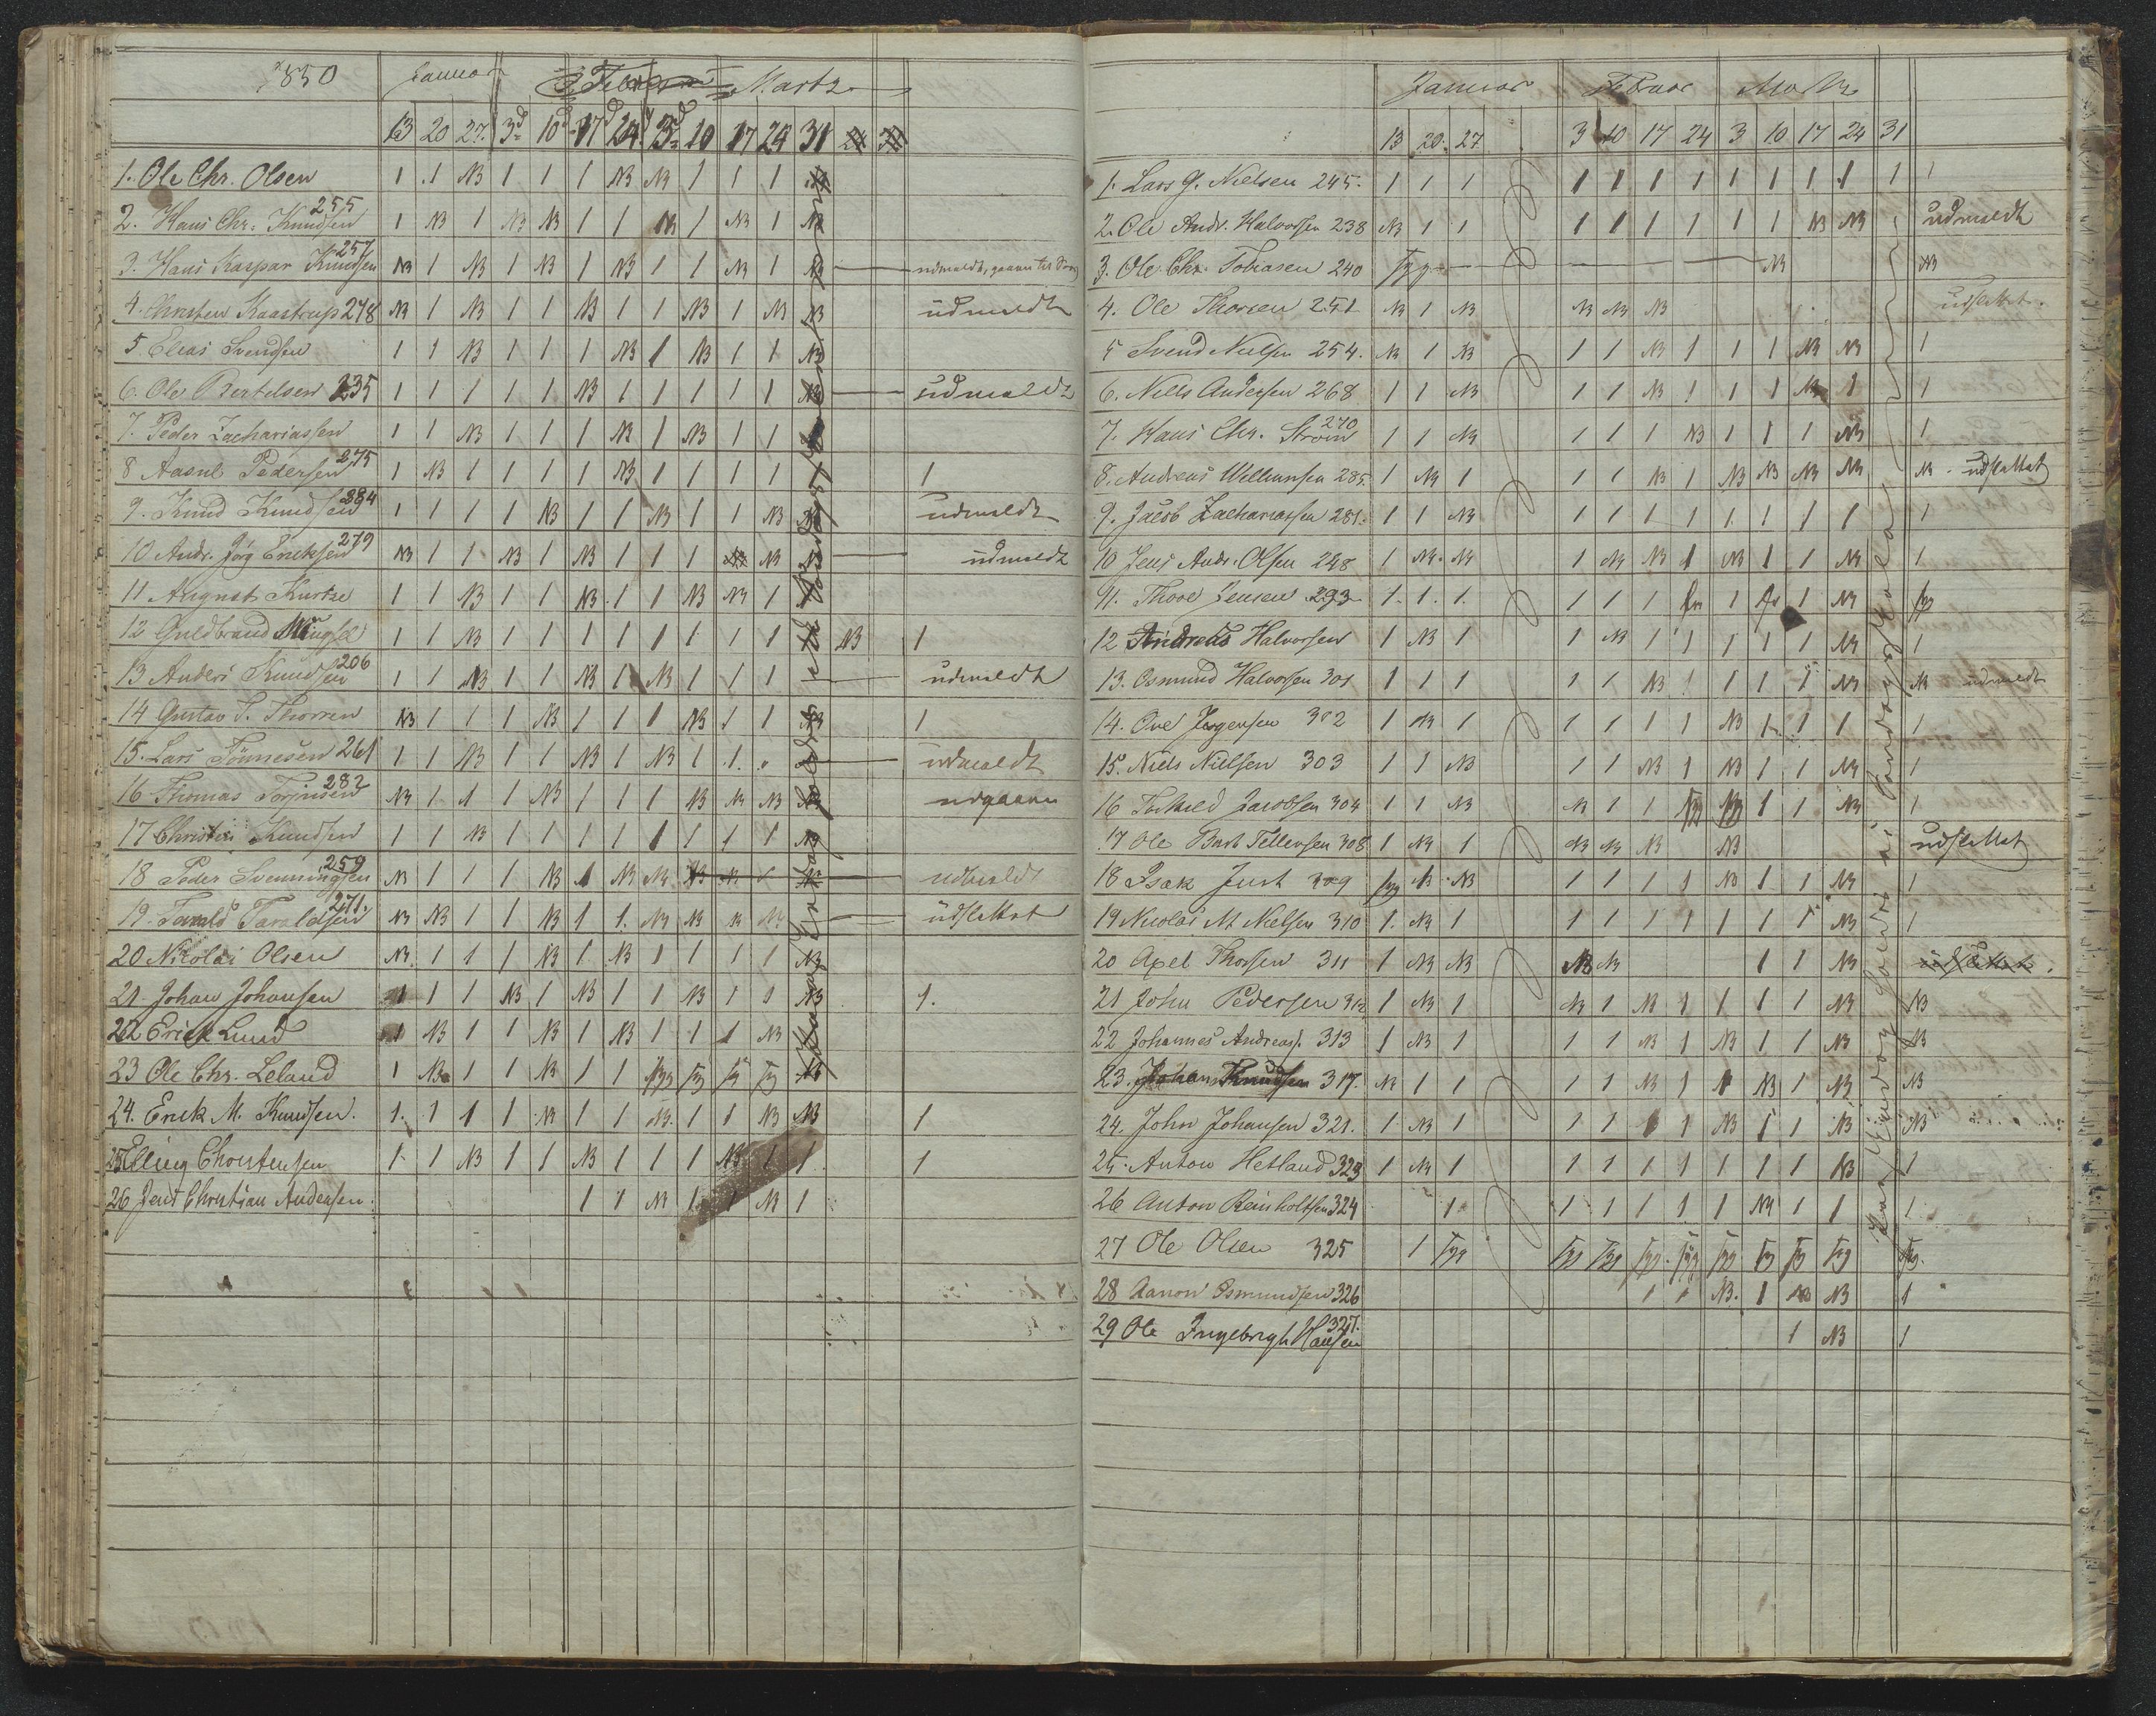 1850 Januar Februar Martz
13 20 27. 3d 10d 17d 24d 3d 10 17 24 31 24 31
1. Ole Chr. Olsen 1 1 NB 1 1 1 NB NB 1 1 1
2. Hans Chr. Knudsen 255 1 NB 1 NB NB 1 1 NB 1 NB 1 NB
3. Hans Kaspar Knudsen 257 NB 1 NB 1 NB 1 NB 1 1 NB 1 NB udmeldt, gaaen til
4. Christen Kaastrup 248 NB 1 NB 1 1 NB 1 1 NB 1 NB NB udmeldt
5. Elias Svendsen 1 1 NB 1 1 1 NB 1 NB 1 1 NB
6. Ole Bertelsen 235 1 1 1 1 1 NB 1 1 1 1 1 NB udmeldt
7. Peder Zachariassen 1 1 NB 1 1 1 NB 1 NB 1 1
8 Aasul Pedersen 275 1 NB 1 1 1 1 NB 1 1 1 1 1
9. Knud Knudsen 284 1 1 1 1 NB 1 1 NB 1 1 NB NB udmeldt
10 Andr. Jørg Eriksen 279 NB 1 1 NB 1 NB 1 1 1 NB NB NB udmeldt
11 August Kurtze 1 1 NB 1 1 NB 1 1 NB NB 1
12 Guldbrand 1 1 NB 1 1 1 1 1 1 1 1 NB 1
13 Anders Knudsen 206 1 1 NB 1 1 NB 1 NB 1 1 1 udmeldt
14 Gustav T. Thorsen NB 1 1 1 NB 1 1 1 NB 1 1 NB 1
15. Lars Tönnesen 261 1 1 NB 1 1 NB 1 NB 1 1. udmeldt
16 Thomas Torjusen 282 NB 1 1 1 NB 1 1 1 NB NB NB NB udgaaen
17 Christen Knudsen 1 1 NB 1 1 1 1 1 1 1 1 NB
18 Peder Svenningsen 259 NB 1 1 1 NB 1 NB NB NB NB udmeldt
19. Tarald Taraldsen 271. NB NB 1 1 NB 1 1. NB NB NB NB udslettet
20 Nikolai Olsen NB 1 1 1 NB 1 NB 1 1 1 1 NB
21 Johan Johansen 1 1 1 NB 1 NB 1 1 NB 1 1 NB 1.
22 Erick Lund 1 NB 1 1 NB 1 NB 1 1 1 NB
23 Ole Chr. Leland 1 NB 1 1 NB 1 1 syg syg syg syg NB
24. Erick M. Knudsen. 1. 1 1 1 NB 1 1 NB. 1 1 NB NB 1
25 Elling Chorstensen 1 1 NB 1 1 NB 1 1 1 NB 1 1 1
26 Jens Christian Andersen. 1 1 NB 1 1 NB 1
Januar Februar Martz
13 20. 27 3 10 17 24 3 10 17 24 31
1. Lars G. Nielsen 245. 1 1 1 1 1 1 1 1 1 1 1 1 1
2. Ole Andr. Halvorsen 238 NB 1 1 1 1 1 1 1 1 NB NB udmeldt
3. Ole Chr. Tobiasen 240 syg NB NB
4. Ole Thorsen 251 NB 1 NB NB NB NB udslettet.
5 Svend Nielsen 254. NB 1 NB 1 1 NB 1 1 1 NB NB 1
6. Niels Andersen 268 1 1 NB 1 1 NB 1 1 1 NB 1 1
7. Hans Chr. Strøm 270 1 1 NB 1 1 1 NB 1 1 1 NB 1
8. Andreas Welhumsen 285. 1 NB 1 1 1 NB 1 NB NB NB NB NB. udslettet
9. Jacob Zachariassen 281. 1 1 NB 1 1 1 1 1 1 1 1 1
10 Jens Andr. Olsen 248 1 NB. NB 1 NB NB 1 NB 1 1 NB 1
11. Thore Jensen 293 1. 1. 1. 1 1 1 1 1 NB syg
12 Andreas Halvorsen 1 NB 1 1 NB 1 1 1 1 1 NB 1
13. Osmund Halvorsen 301 1 1 1 1 1 NB 1 1 1 1 NB NB udmeldt
14. Ove Jørgensen 302 1 NB 1 1 1 1 1 NB 1 1 1 1
15. Niels Nielsen 303 1 1 NB 1 1 NB 1 NB 1 1 NB 1
16 Terkield Jacobsen 304 1 1 NB NB 1 1 syg NB 1 1 NB 1
17 Ole Bart Tellevsen 308 1 NB 1 NB NB NB NB udslettet
18 Isak Just 309 syg NB NB 1 1 1 1 NB 1 1 NB 1
19 Nicolai M Nielsen 310 1. NB 1 1 1 1 1 1 1 1 NB 1
20 Axel Thorsen 311 1 NB NB NB NB 1 1 NB udslettet.
21 John Pedersen 312 1 NB 1 NB 1 NB 1 1 1 1 NB NB
22 Johannes Andreas. 313 1 NB 1 1 1 NB 1 NB 1 1 NB NB
23. Johan Knudsen 317. NB 1 1 1 1 NB 1 1 NB 1 NB NB
24. John Johansen 321. 1 NB 1 1 1 1 1 NB 1 1 NB NB
25. Anton Hetland 323 1 NB 1 1 1 1 1 1 1 1 NB 1
26 Anton Reinholtsen 324 1 1 1 1 1 1 NB 1 1 1
27 Ole Olsen 325 1 syg syg syg syg syg syg syg syg syg syg.
28 Aanon Osmundsen 326 1 1 NB. 1 NB NB 1
29 Ole Ingebrigt Hansen 327. 1 NB 1